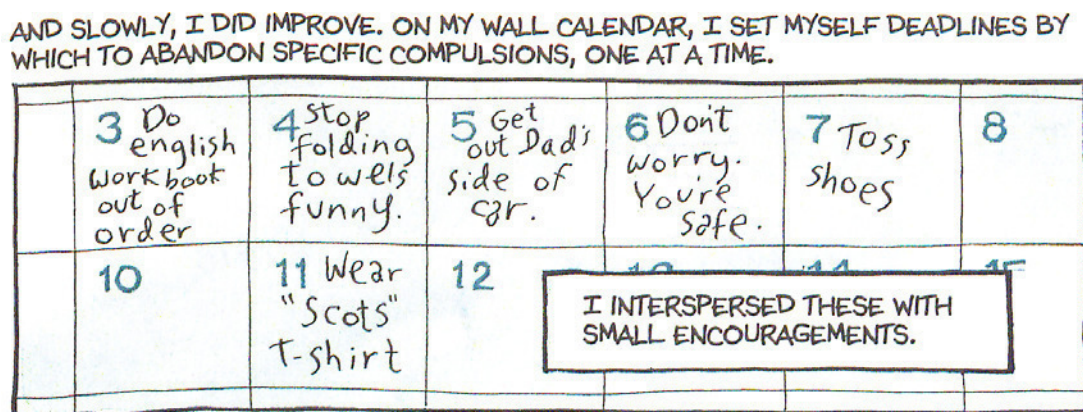 AND SLOWLY, I DID IMPROVE. ON MY WALL CALENDAR, I SET MYSELF DEADLINES BY
WHICH TO ABANDON SPECIFIC COMPULSIONS, ONE AT A TIME.
3 Do
english
workbook
out of
order
4 stop
folding
towels
funny.
5 Get
out Dad's
side of
car.
6 Don't
worry.
You're
safe.
7 Toss
shoes
8
10
11 Wear
"Scots"
T-shirt
12
13
14
15
I INTERSPERSED THESE WITH
SMALL ENCOURAGEMENTS.